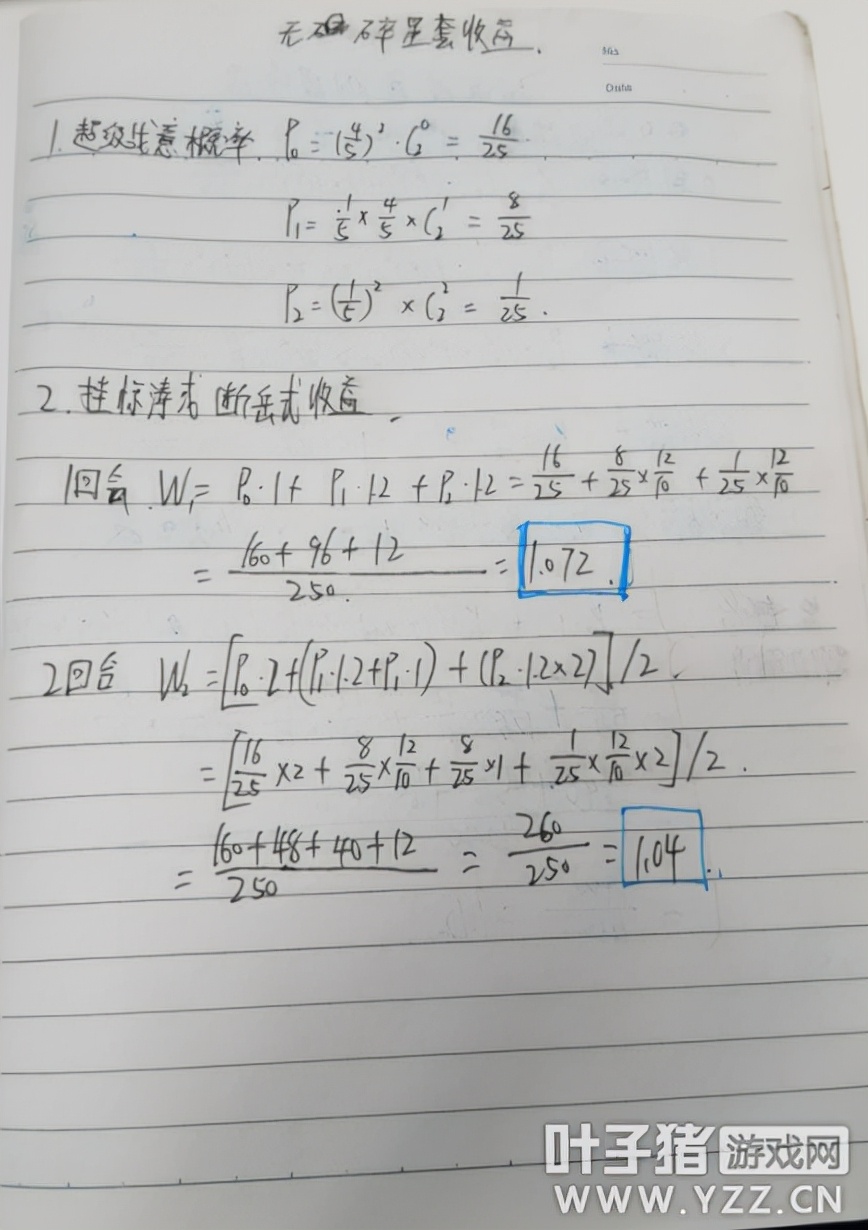 无 碎星套收益.
No.
Date
1. 超级战意概率. P₀ = (4/5)² · C₂⁰ = 16/25.
P₁ = 1/5 × 4/5 × C₂¹ = 8/25
P₂ = (1/5)² × C₂² = 1/25.
2. 挂标 断岳式收益.
1回合. W₁ = P₀·1 + P₁·1.2 + P₂·1.2 = 16/25 + 8/25 × 12/10 + 1/25 × 12/10
= (160 + 96 + 12)/250. = 1.072.
2回合 W₂ = [P₀·2 + (P₁·1.2 + P₁·1) + (P₂·1.2×2)] / 2.
= [16/25 × 2 + 8/25 × 12/10 + 8/25 × 1 + 1/25 × 12/10 × 2] / 2.
= (160 + 48 + 40 + 12)/250 = 260/250 = 1.04.
叶子猪 游戏网
WWW.YZZ.CN